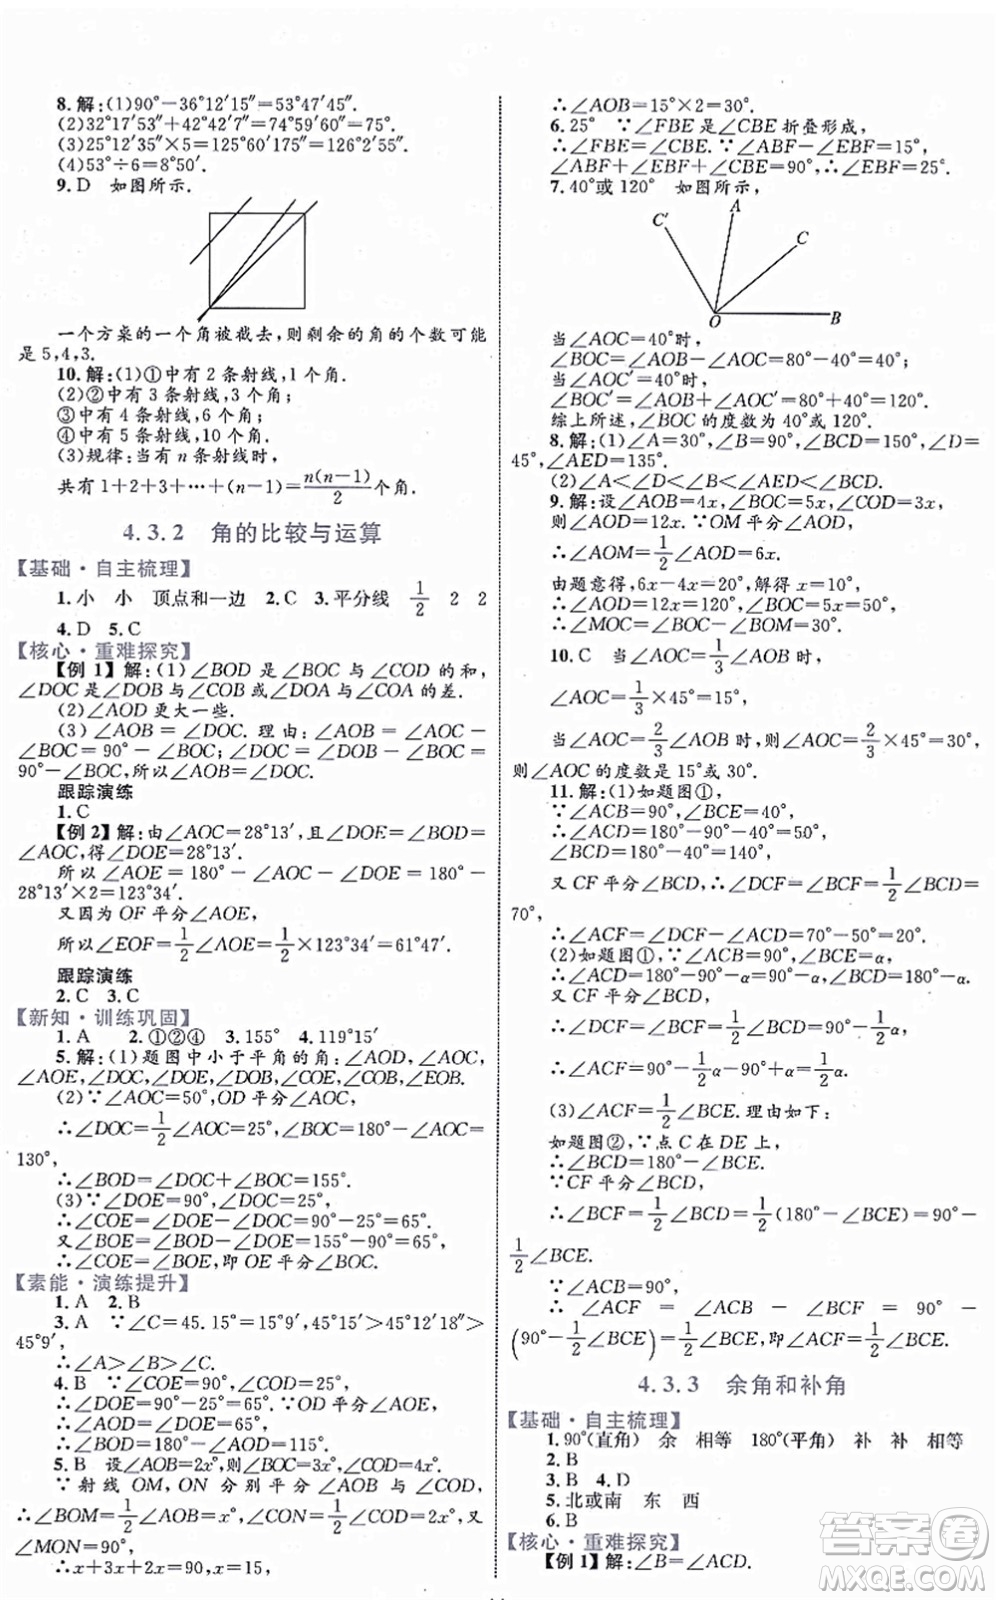 8. 解:(1)90°－36°12′15″＝53°47′45″.
(2)32°17′53″＋42°42′7″＝74°59′60″＝75°.
(3)25°12′35″×5＝125°60′175″＝126°2′55″.
(4)53°÷6＝8°50′.
9. D 如图所示.
一个方桌的一个角被截去,则剩余的角的个数可能
是5,4,3.
10. 解:(1)①中有2条射线,1个角.
(2)②中有3条射线,3个角;
③中有4条射线,6个角;
④中有5条射线,10个角.
(3)规律:当有n条射线时,
共有1＋2＋3＋…＋(n－1)＝n(n－1)/2个角.
4.3.2 角的比较与运算
【基础·自主梳理】
1. 小 小 顶点和一边 2. C 3. 平分线 1/2 2 2
4. D 5. C
【核心·重难探究】
【例1】解:(1)∠BOD是∠BOC与∠COD的和,
∠DOC是∠DOB与∠COB或∠DOA与∠COA的差.
(2)∠AOD更大一些.
(3)∠AOB＝∠DOC. 理由:∠AOB＝∠AOC－
∠BOC＝90°－∠BOC;∠DOC＝∠DOB－∠BOC＝
90°－∠BOC,所以∠AOB＝∠DOC.
跟踪演练
1. C
【例2】解:由∠AOC＝28°13′,且∠DOE＝
∠AOC,得∠DOE＝28°13′.
所以∠AOE＝180°－∠AOC－∠DOE＝180°－
28°13′×2＝123°34′.
又因为OF平分∠AOE,
所以∠EOF＝1/2∠AOE＝1/2×123°34′＝61°47′.
跟踪演练
2. C 3. C
【新知·训练巩固】
1. A 2. ①②④ 3. 155° 4. 119°15′
5. 解:(1)题图中小于平角的角:∠AOD,∠AOC,
∠AOE,∠DOC,∠DOE,∠DOB,∠COE,∠COB,∠EOB.
(2)∵∠AOC＝50°,OD平分∠AOC,
∴∠DOC＝1/2∠AOC＝25°,∠BOC＝180°－∠AOC＝
130°,
∴∠BOD＝∠DOC＋∠BOC＝155°.
(3)∵∠DOE＝90°,∠DOC＝25°,
∴∠COE＝∠DOE－∠DOC＝90°－25°＝65°.
又∠BOE＝∠BOD－∠DOE＝155°－90°＝65°,
∴∠COE＝∠BOE,即OE平分∠BOC.
【素能·演练提升】
1. A 2. B
3. A ∵∠C＝45.15°＝15°9′,45°15′＞45°12′18″＞
45°9′,
∴∠A＞∠B＞∠C.
4. B ∵∠COE＝90°,∠COD＝25°,
∴∠DOE＝90°－25°＝65°.∵OD平分∠AOE,
∴∠AOD＝∠DOE＝65°,
∴∠BOD＝180°－∠AOD＝115°.
5. B 设∠AOB＝2x°,则∠BOC＝3x°,∠COD＝4x°.
∵射线OM,ON分别平分∠AOB与∠COD,
∴∠BOM＝1/2∠AOB＝x°,∠CON＝1/2∠COD＝2x°,又
∠MON＝90°,
∴x＋3x＋2x＝90,∴x＝15,
∴∠AOB＝15°×2＝30°.
6. 25° ∵∠FBE是∠CBE折叠形成,
∴∠FBE＝∠CBE.∵∠ABF－∠EBF＝15°,
∠ABF＋∠EBF＋∠CBE＝90°,∴∠EBF＝25°.
7. 40°或120° 如图所示,
C′
A
C
O
B
当∠AOC＝40°时,
∠BOC＝∠AOB－∠AOC＝80°－40°＝40°;
当∠AOC′＝40°时,
∠BOC′＝∠AOB＋∠AOC′＝80°＋40°＝120°.
综上所述,∠BOC的度数为40°或120°.
8. 解:(1)∠A＝30°,∠B＝90°,∠BCD＝150°,∠D＝
45°,∠AED＝135°.
(2)∠A＜∠D＜∠B＜∠AED＜∠BCD.
9. 解:设∠AOB＝4x,∠BOC＝5x,∠COD＝3x,
则∠AOD＝12x.∵OM平分∠AOD,
∴∠AOM＝1/2∠AOD＝6x.
由题意得,6x－4x＝20°,解得x＝10°,
∴∠AOD＝12x＝120°,∠BOC＝5x＝50°,
∴∠MOC＝∠BOC－∠BOM＝30°.
10. C 当∠AOC＝1/3∠AOB时,
∠AOC＝1/3×45°＝15°,
当∠AOC＝2/3∠AOB时,则∠AOC＝2/3×45°＝30°,
则∠AOC的度数是15°或30°.
11. 解:(1)如题图①,
∵∠ACB＝90°,∠BCE＝40°,
∴∠ACD＝180°－90°－40°＝50°,
∠BCD＝180°－40°＝140°,
又CF平分∠BCD,∴∠DCF＝∠BCF＝1/2∠BCD＝
70°,
∴∠ACF＝∠DCF－∠ACD＝70°－50°＝20°.
(2)如题图①,∵∠ACB＝90°,∠BCE＝α,
∴∠ACD＝180°－90°－α＝90°－α,∠BCD＝180°－α.
又CF平分∠BCD,
∴∠DCF＝∠BCF＝1/2∠BCD＝90°－1/2α,
∴∠ACF＝90°－1/2α－90°＋α＝1/2α.
(3)∠ACF＝1/2∠BCE. 理由如下:
如题图②,∵点C在DE上,
∴∠BCD＝180°－∠BCE.
∵CF平分∠BCD,
∴∠BCF＝1/2∠BCD＝1/2(180°－∠BCE)＝90°－
1/2∠BCE.
∵∠ACB＝90°,
∴∠ACF＝∠ACB－∠BCF＝90°－
(90°－1/2∠BCE)＝1/2∠BCE,即∠ACF＝1/2∠BCE.
4.3.3 余角和补角
【基础·自主梳理】
1. 90°(直角) 余 相等 180°(平角) 补 补 相等
2. B
3. B 4. D
5. 北或南 东 西
6. B
【核心·重难探究】
【例1】解:∠B＝∠ACD.
答案圈
MXQE.COM